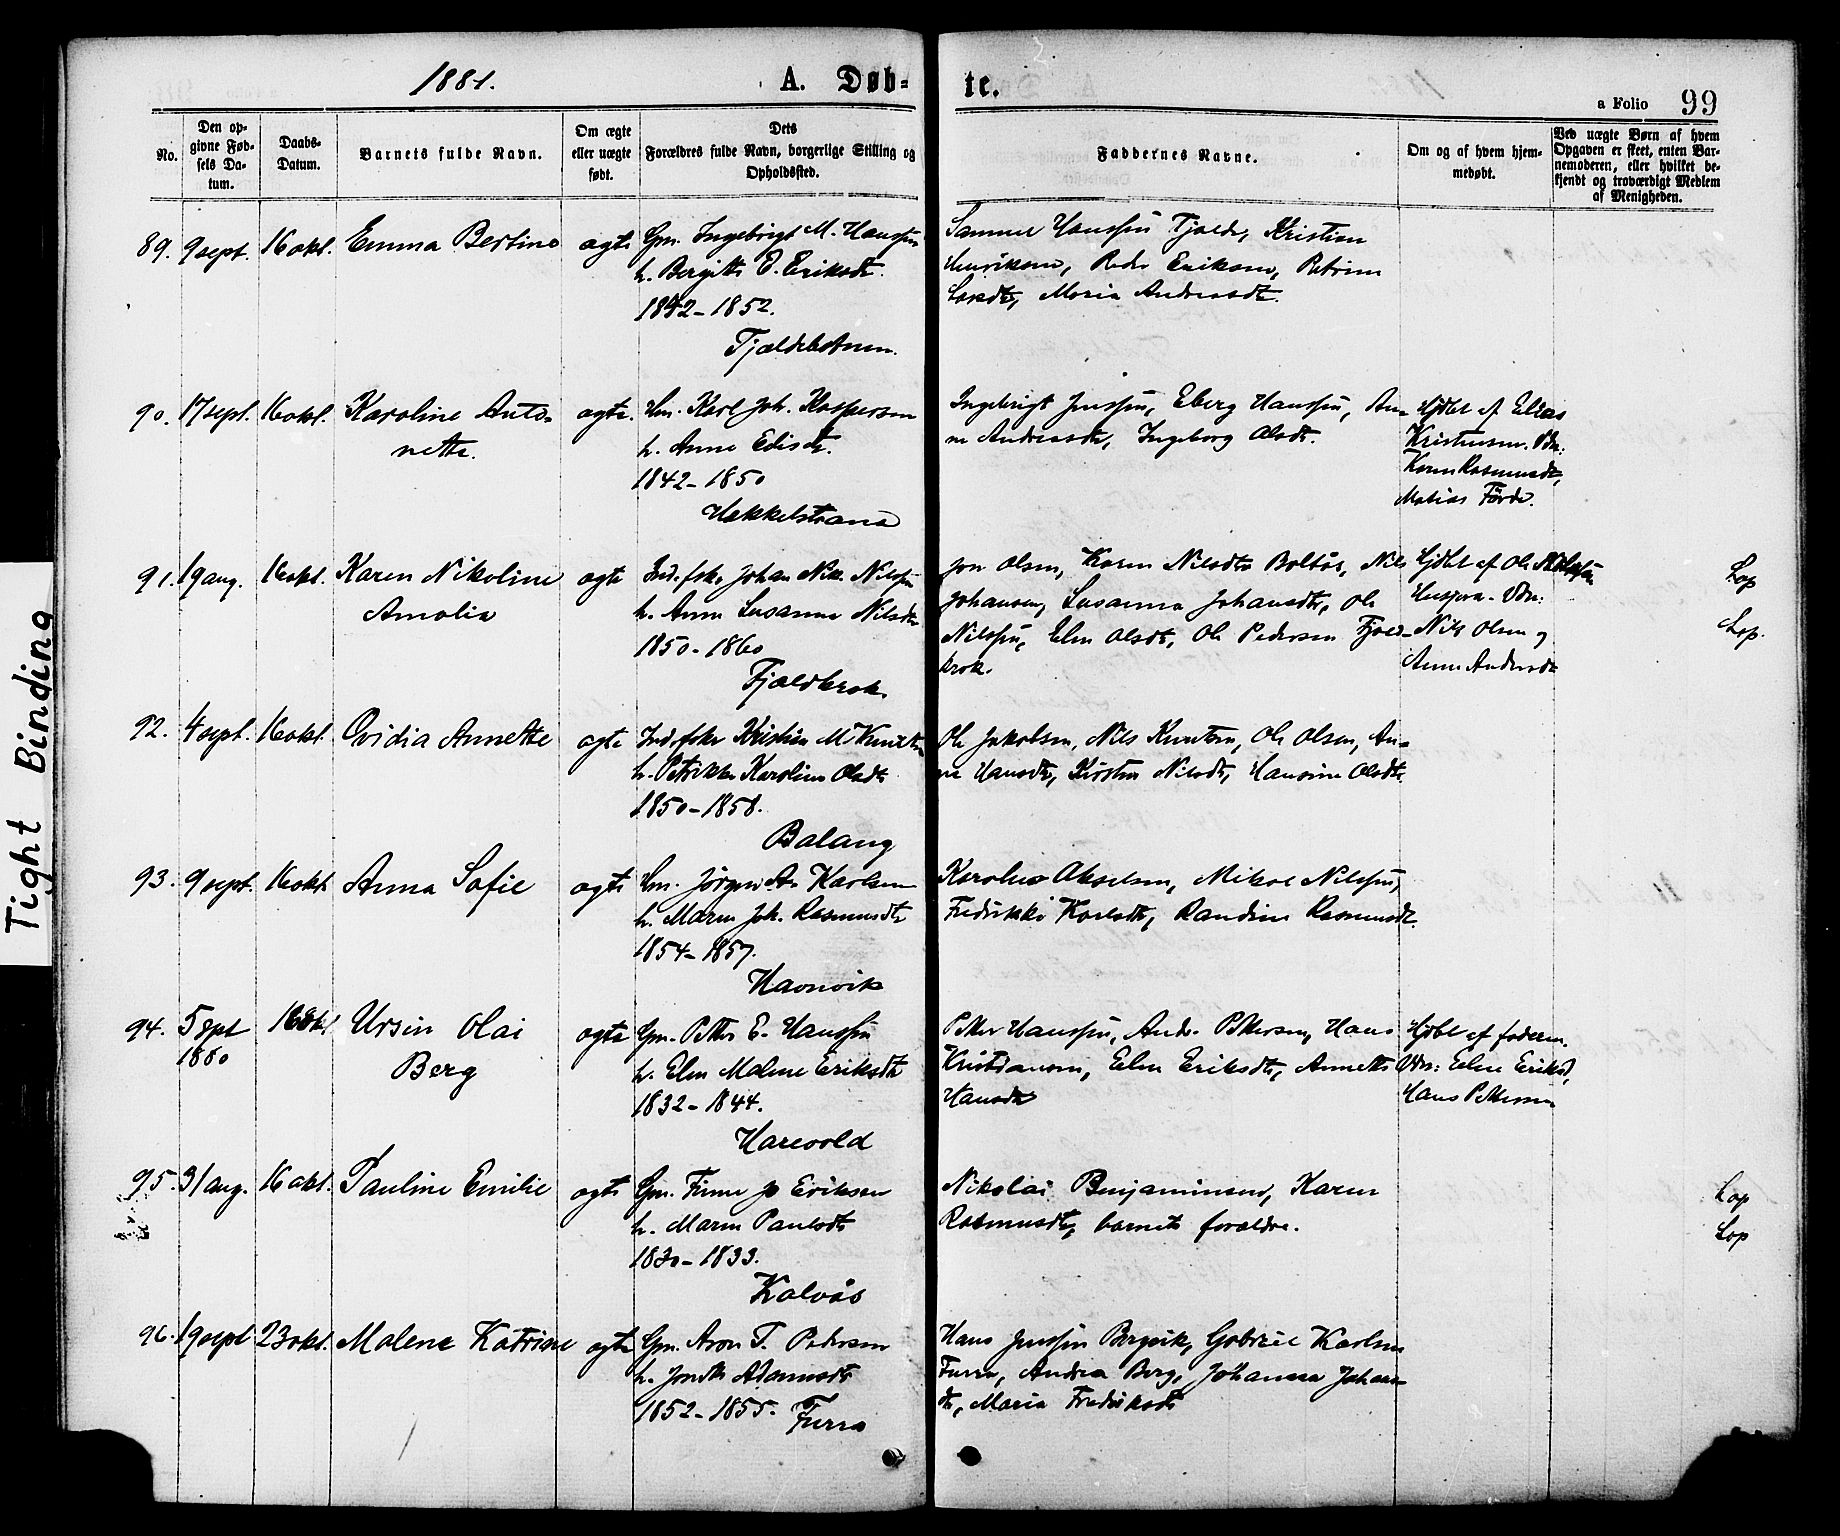 1881.
A. Døb-
te.
a Folio 99
Tight Binding
No.
Den op-
givne Fød-
sels Da-
tum.
Daabs-
Datum.
Barnets fulde Navn.
Om ægte
eller uægte
født.
Dets
Forældres fulde Navn, borgerlige Stilling og
Opholdssted.
Faddernes Navne.
Om og af hvem hjem-
medøbt.
Ved uægte Børn af hvem
Opgaven er skeet, enten Bar-
nemoderen, eller hvilket be-
kjendt og troværdigt Medlem
af Menigheden.
89. 9 sept. 16 okt. Emma Bertine ægte Gm. Ingebrigt M. Hanssen
h. Bergitte E. Eriksdt.
1842-1852.
Tjældebotnen.
Sammel Hanssen Tjelde, Kristian
Henriksen, Peder Eriksen,
Larsdt, Maria Andreasdt.
90. 17 sept. 16 okt. Karoline Anto-
nette.
ægte. Hm. Karl Joh. Kaspersen
h. Anne Edisdt.
1842-1850
Hekkelstrand
Ingebrigt Jenssen, Eberg Hanssen, An-
ne Andreasdt, Ingeborg Olsdt.
Hjdbt af Elias
Kristensen. Vdn:
Karen Rasmusdt,
Matias Förde.
91. 19 aug. 16 okt. Karen Nikoline
Amalia
ægte Ind. fsk. Johan Nik. Nilssen
h. Anne Susanna Nilsdt
1850-1860
Fjældkrok.
Jon Olsen, Karen Nilsdt Boltås, Nils
Johansen, Susanna Johansdt, Ole
Nilssen, Elen Olsdt, Ole Pedersen Fjeld-
krok.
Hjdbt af Ole Nilssen
Husjord. Vdn:
Nils Olsen og
Anne Andersdt
Lap
Lap.
92. 4 sept. 16 okt. Ovidia Annette
ægte Ind. fsker Kristian M. Knutsen
h. Petrikke Karoline Olsdt
1850-1858.
Balang
Ole Jakobsen, Nils Knutsen, Ole Olsen, An-
ne Hansdt, Kirsten Nilsdt, Hansine Olsdt.
93. 9 sept. 16 okt Anna Sofie
ægte Hm. Jörgen A. Karlsen
h. Maren Joh. Rasmusdt
1854-1857.
Havnvik
Karolius Akselsen, Mikal Nilssen,
Fredrikke Karlsdt, Randine Rasmusdt.
94. 5 sept
1880
16 okt. Ursin Olai
Berg
ægte Gm. Petter E. Hanssen
h. Elen Malene Eriksdt
1832-1844.
Harevold
Petter Hanssen, Andr. Pettersen, Hans
Kristiansen, Elen Eriksdt, Annette
Hansdt
Hjdbt af faderen.
Vdn: Elen Eriksd,
Hans Pettersen
95. 31 aug. 16 okt. Pauline Emilie
ægte Gm. Finne Jo Eriksen
h. Maren Paulsdt
1830-1833.
Kalvås
Nikolai Benjaminsen, Karen
Rasmusdt, barnets forældre.
Lap
Lap
96. 19 sept 23 okt. Malene Katrine
ægte Gm. Aron T. Pedersen
h. Adamsdt
1852-1855.
Furra
Hans Jenssen Bergvik, Gabriel Karlsen
Furra, Andrea Berg, Johanna Johans-
dt, Maria Fredriksdt